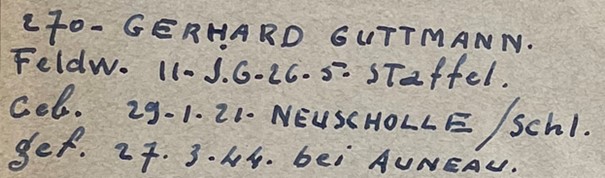 270- GERHARD GUTTMANN.
Feldw. 11- J.G-26-5- Staffel.
Geb. 29-1-21- NEUSCHOLLE/Schl.
gef. 27.3-44. bei AUNEAU.